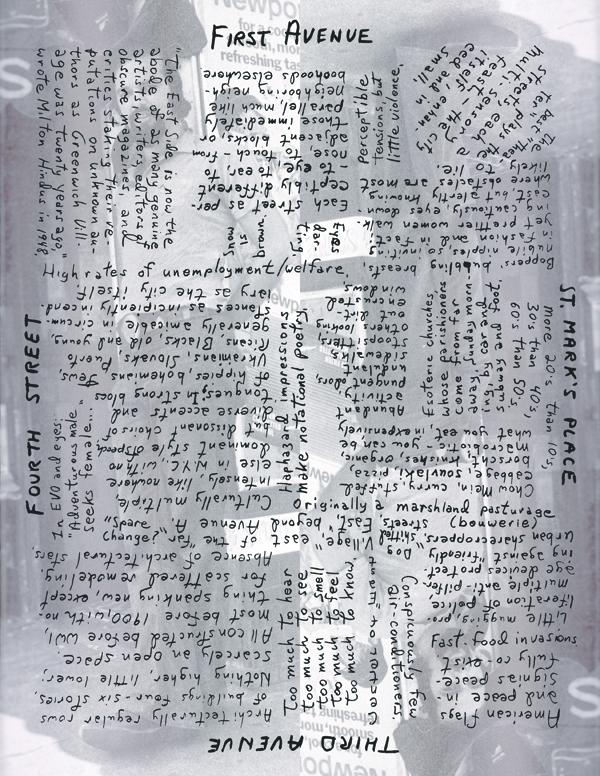 FIRST AVENUE
"The East Side is now the
abode of as many genuine
artists, writers, editors of
obscure magazines, and
critics staking their re-
putations on unknown au-
thors as Greenwich Vill-
age was twenty years ago,"
wrote Milton Hindus in 1948.
Each street as per-
ceptibly different
-to eye, to ear, to
nose, to touch-from
adjacent blocks, or
those immediately
parallel, much like
neighboring neigh-
borhoods elsewhere
Perceptible
tensions, but
little violence.
The
best thea-
ter plays the
streets, each a
multi-sensory
feast-the
itself
and in
small,
Eyes
dar-
ting.
brown
is
Smug
Boppers, bobbling breasts,
nubile nipples, so inviting
in fashion and in fact,
yet prettier women walk
incautiously, eyes down
cast, but alertly knowing
where obstacles are most
likely to lie.
High rates of unemployment/welfare,
FOURTH STREET
Culturally multiple,
intensely like nowhere
else in N.Y.C., with no
dominant style of speech
but dissonant choirs of
diverse accents and
tongues; In strong blocs
of hippies, bohemians, Jews,
Ukranians, Slovaks, Puerto
Ricans, Blacks, old and young,
generally amicable in circum-
stances as incipiently incend-
iary as the city itself.
In EVO and eyes:
"Adventurous male
seeks female..."
Haphazard impressions
make notational poetry,
Abundant
activity,
pungent odors,
undulant
sidewalks,
stoopsitters,
others looking
out dirt-
encrusted
windows
Esoteric churches
whose parishioners
come from far
away Sunday morn-
ing, by car and
subway and foot,
ST. MARK'S PLACE
More 20's than 10's,
30's than 40's,
60's than 50's,
Chow Mein, curry, stuffed
cabbage, souvlaki, pizza,
borscht, knishes, organic,
macrobiotic - you can be
what you eat, inexpensively
Originally a marshland pasturage
(bouwerie)
"Spare
change?"
"East Village," east of the "far
streets" beyond Avenue A,
Absence of architectural stars.
Architecturally regular rows
of buildings four-six-stories,
Nothing higher, little lower;
scarcely an open space.
All constructed before WWI,
most before 1900, with no-
thing spanking new, except
for scattered remodeling.
Too much to hear
too much to see
too much to smell
too much to feel
too much to know,
Dog
Conspicuously few
air-conditioners.
Little mugging, pro-
liferation of police
multiple anti-pilfer-
age devices protect-
ing against "friendly,
urban sharecroppers," shifted
Fast-food invasions
American flags
and peace in-
signias peace-
fully co-exist.
THIRD AVENUE